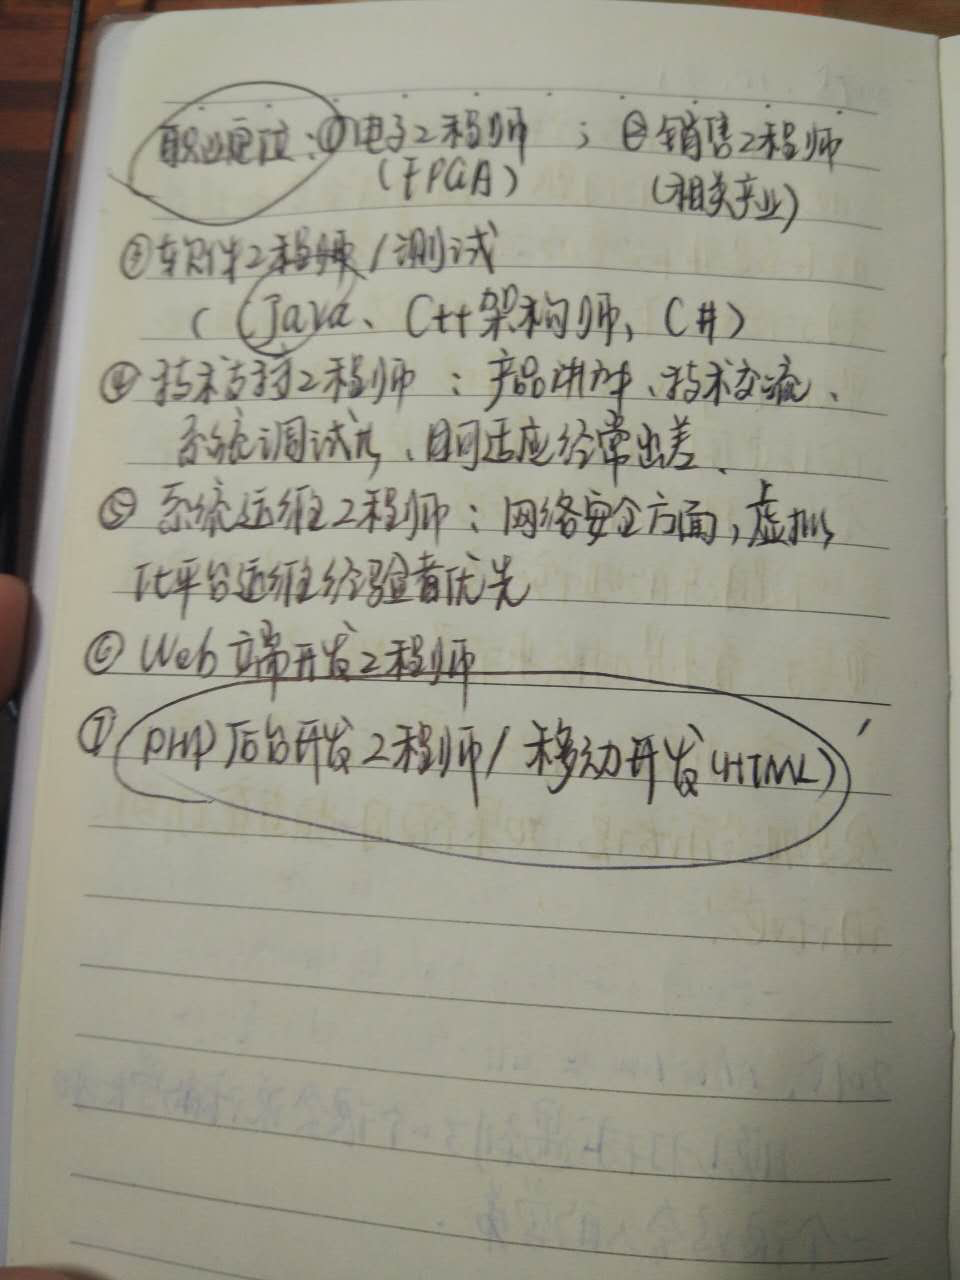 职业定位：①电子工程师 ；②销售工程师
（FPGA） （相关产业）
③软件工程师/测试
（Java、C++架构师、C#）
④技术支持工程师：产品讲解、技术交流、
系统调试，且可适应经常出差、
⑤系统运维工程师：网络安全方面，虚拟
化平台运维经验者优先
⑥Web端开发工程师
⑦PHP后台开发工程师/移动开发（HTML）